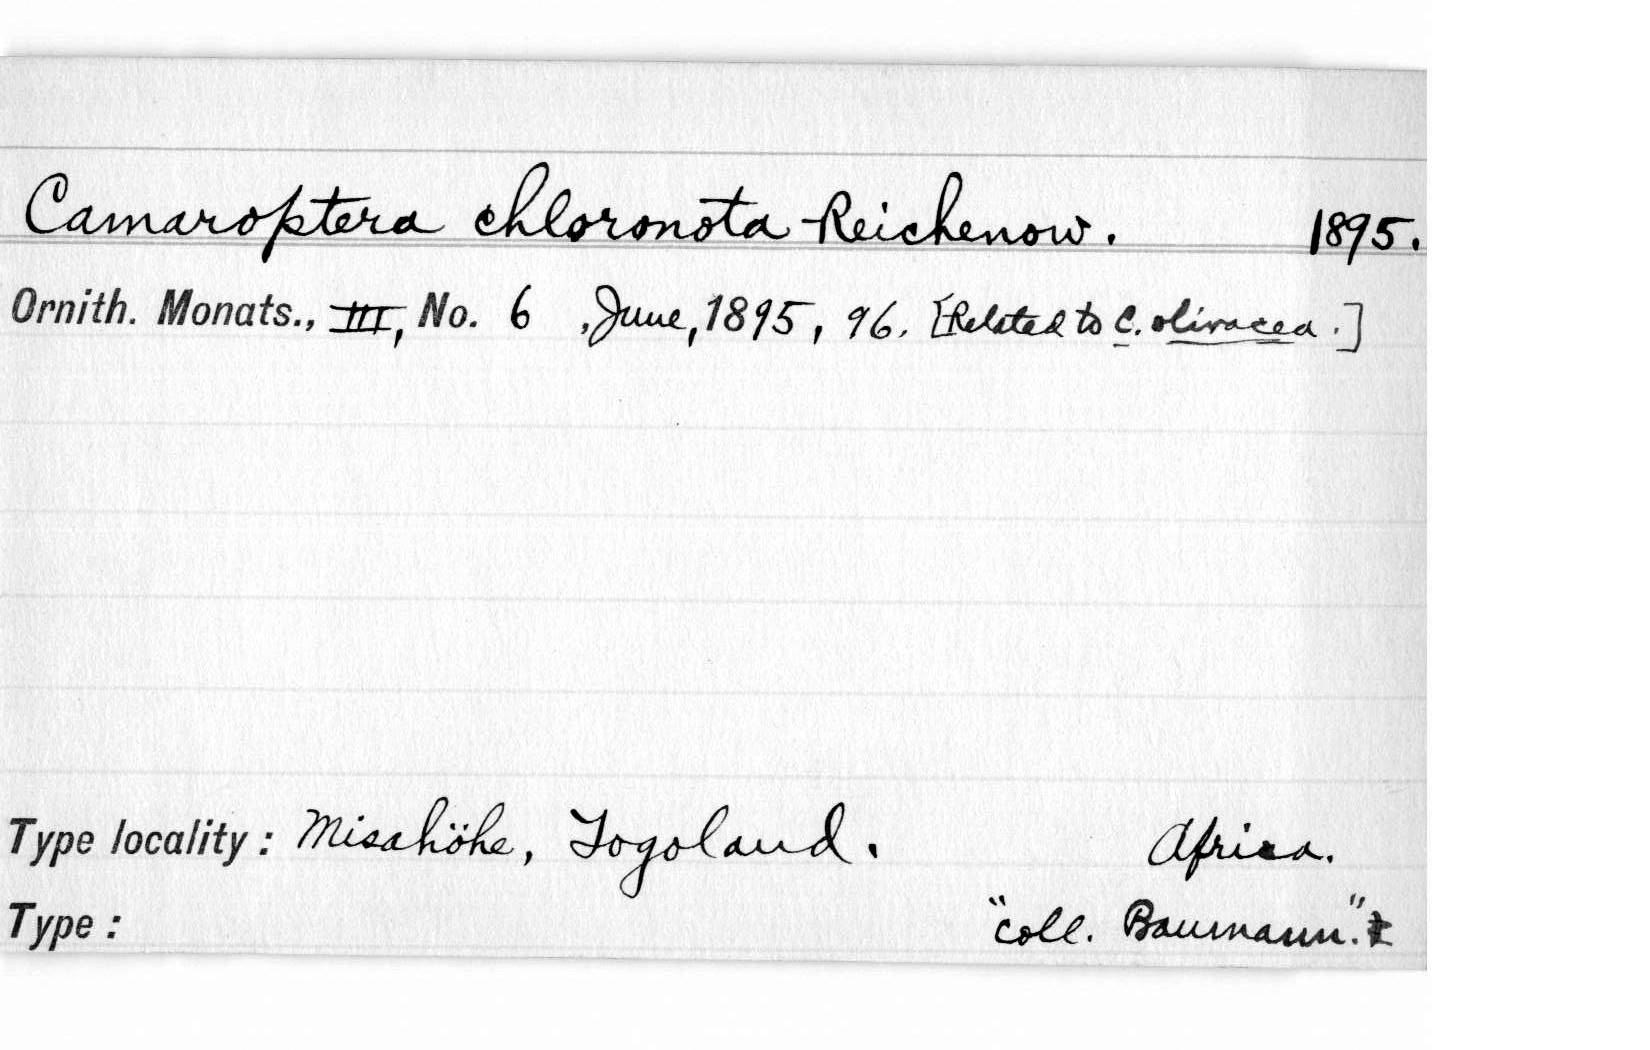 Camaroptera chloronota Reichenow. 1895.
Ornith. Monats., III, No. 6 , June, 1895, 96. [Related to C. olivacea.]
Type locality: Misahöhe, Togoland. Africa.
Type: "coll. Baumann".